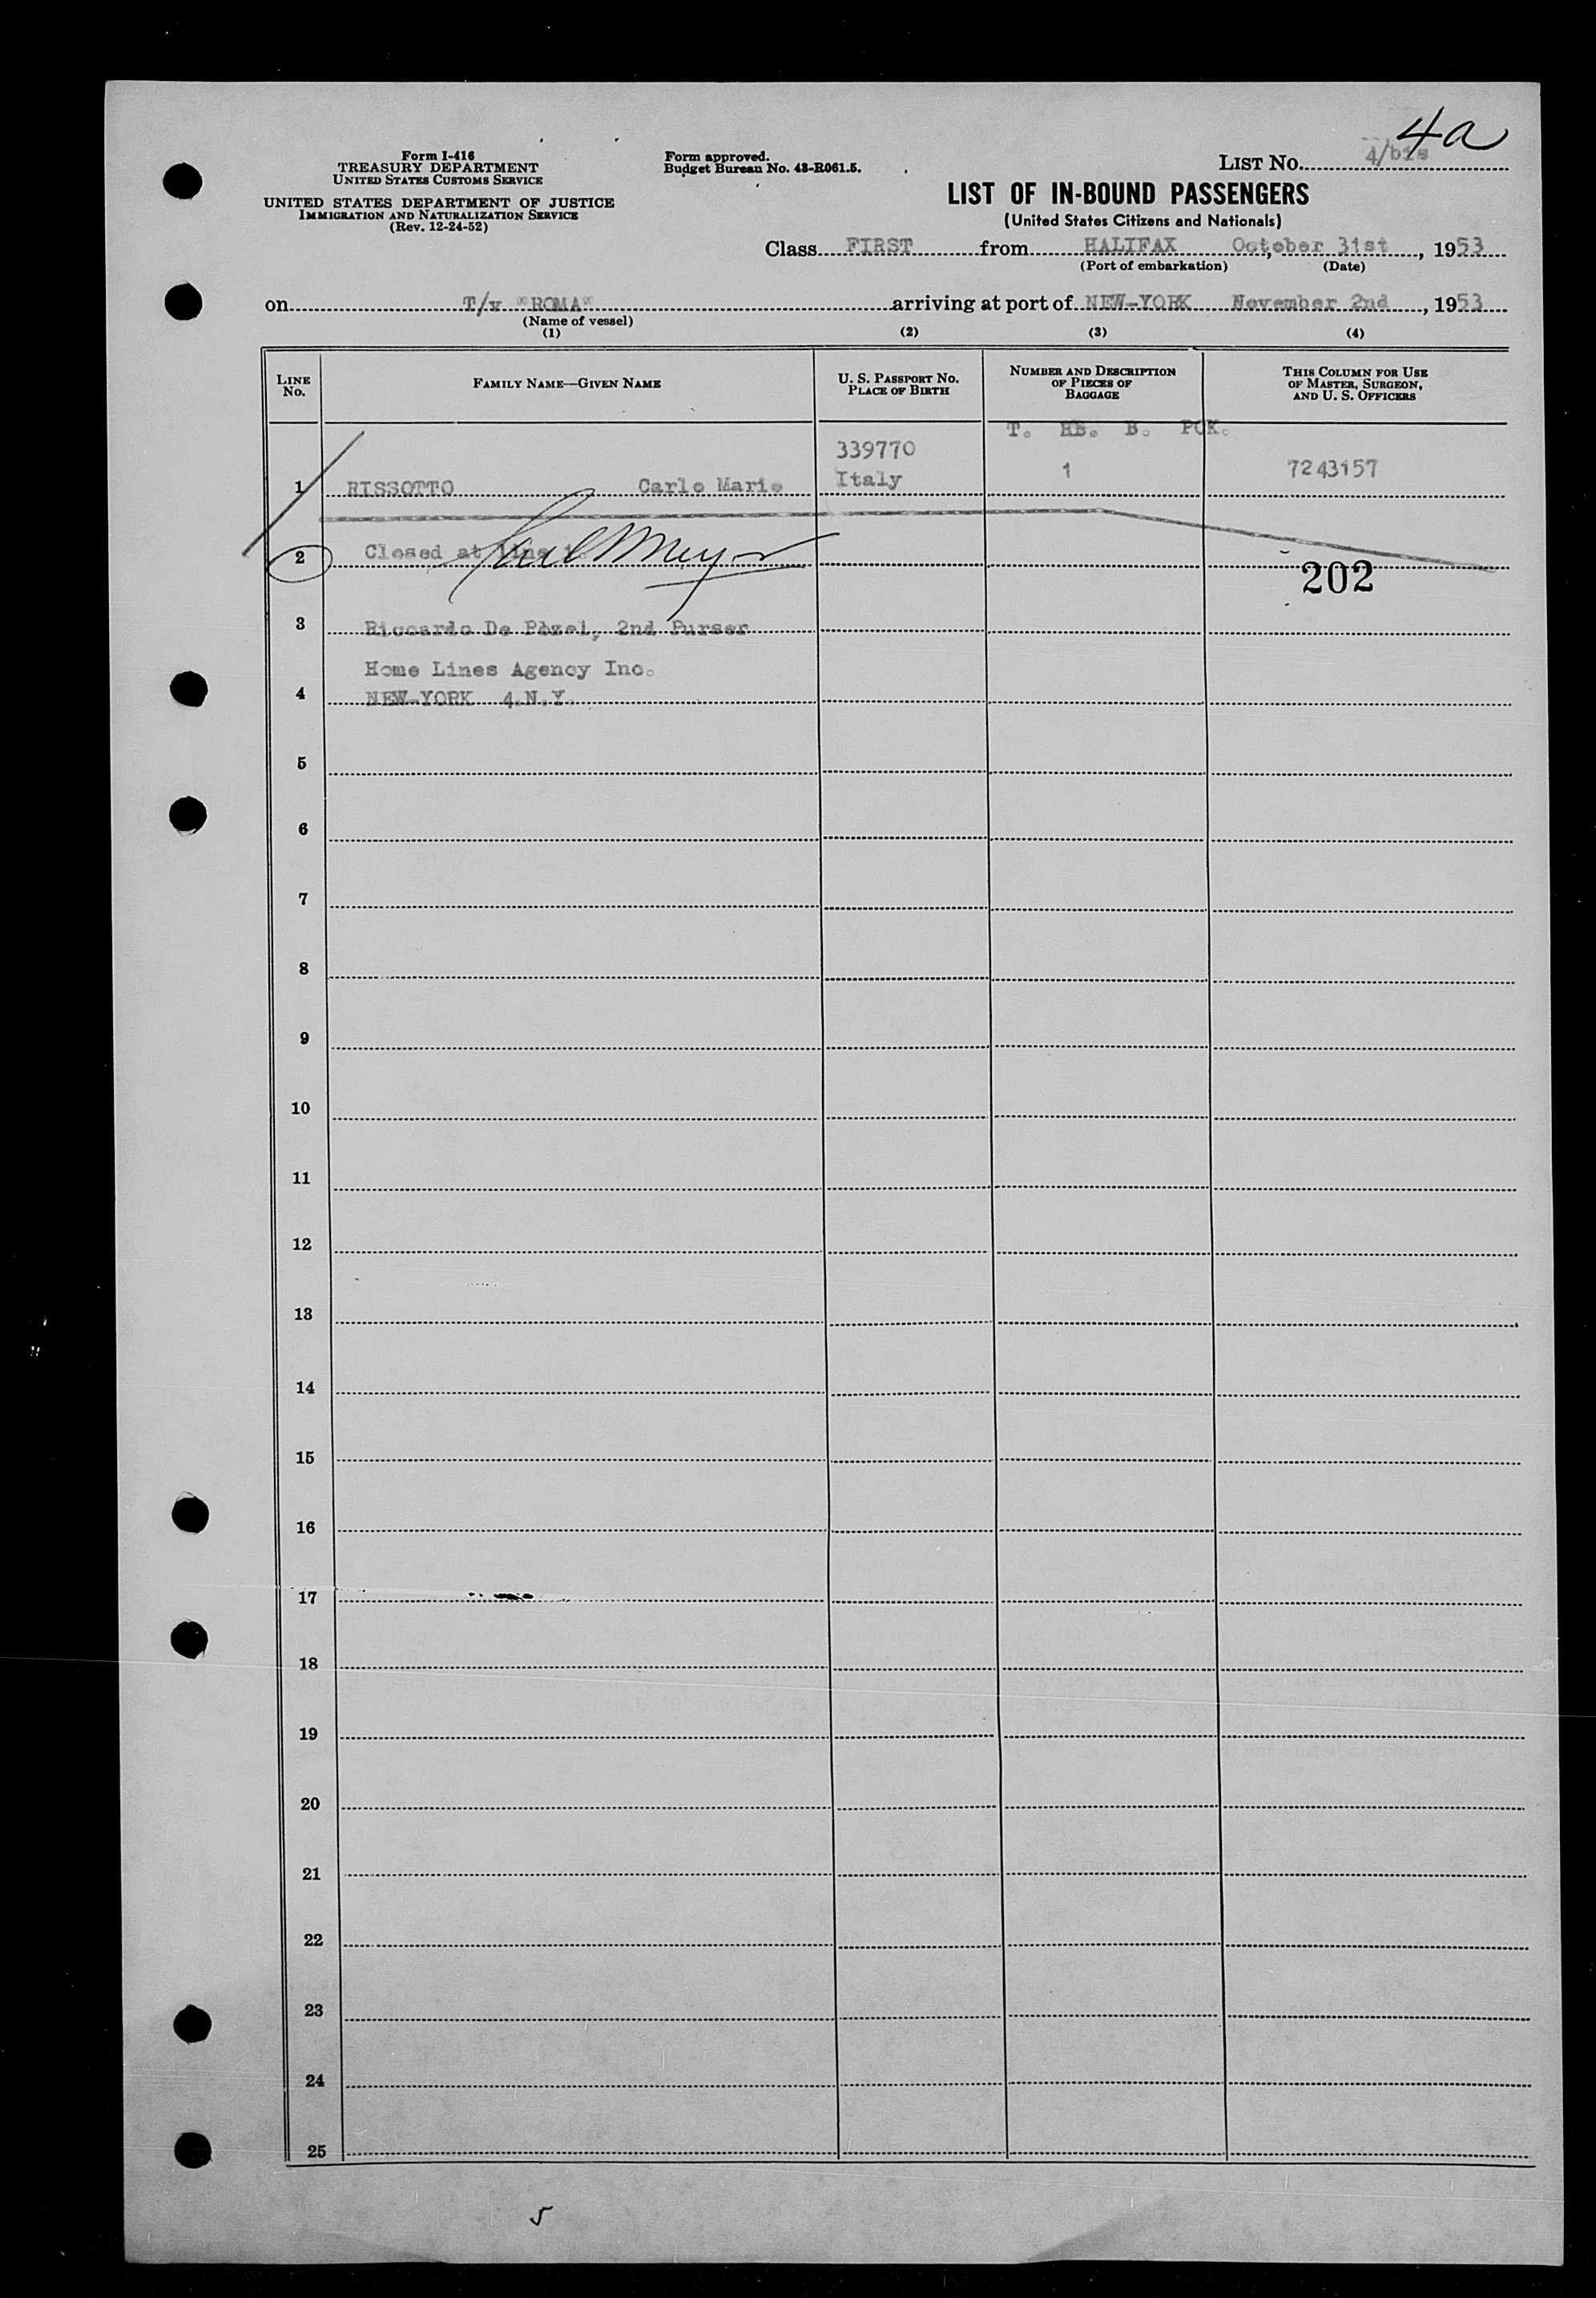 4a
Form I-416
TREASURY DEPARTMENT
UNITED STATES CUSTOMS SERVICE
UNITED STATES DEPARTMENT OF JUSTICE
IMMIGRATION AND NATURALIZATION SERVICE
(Rev. 12-24-52)
Form approved.
Budget Bureau No. 43-R061.5.
LIST No. 4/bis
LIST OF IN-BOUND PASSENGERS
(United States Citizens and Nationals)
Class FIRST from HALIFAX October 31st, 1953
(Port of embarkation) (Date)
on T/v "ROMA" arriving at port of NEW-YORK November 2nd, 1953
(Name of vessel)
(1) (2) (3) (4)
LINE No.
FAMILY NAME—GIVEN NAME
U. S. PASSPORT No.
PLACE OF BIRTH
NUMBER AND DESCRIPTION
OF PIECES OF
BAGGAGE
THIS COLUMN FOR USE
OF MASTER, SURGEON,
AND U. S. OFFICERS
T. HB. B. PCK.
339770
1 RISSOTTO Carlo Mario Italy 1 7243157
2 Closed at line 1.
202
3 Riccardo De Pozel, 2nd Purser
Home Lines Agency Inc.
4 NEW-YORK 4.N.Y.
5
6
7
8
9
10
11
12
13
14
15
16
17
18
19
20
21
22
23
24
25
5